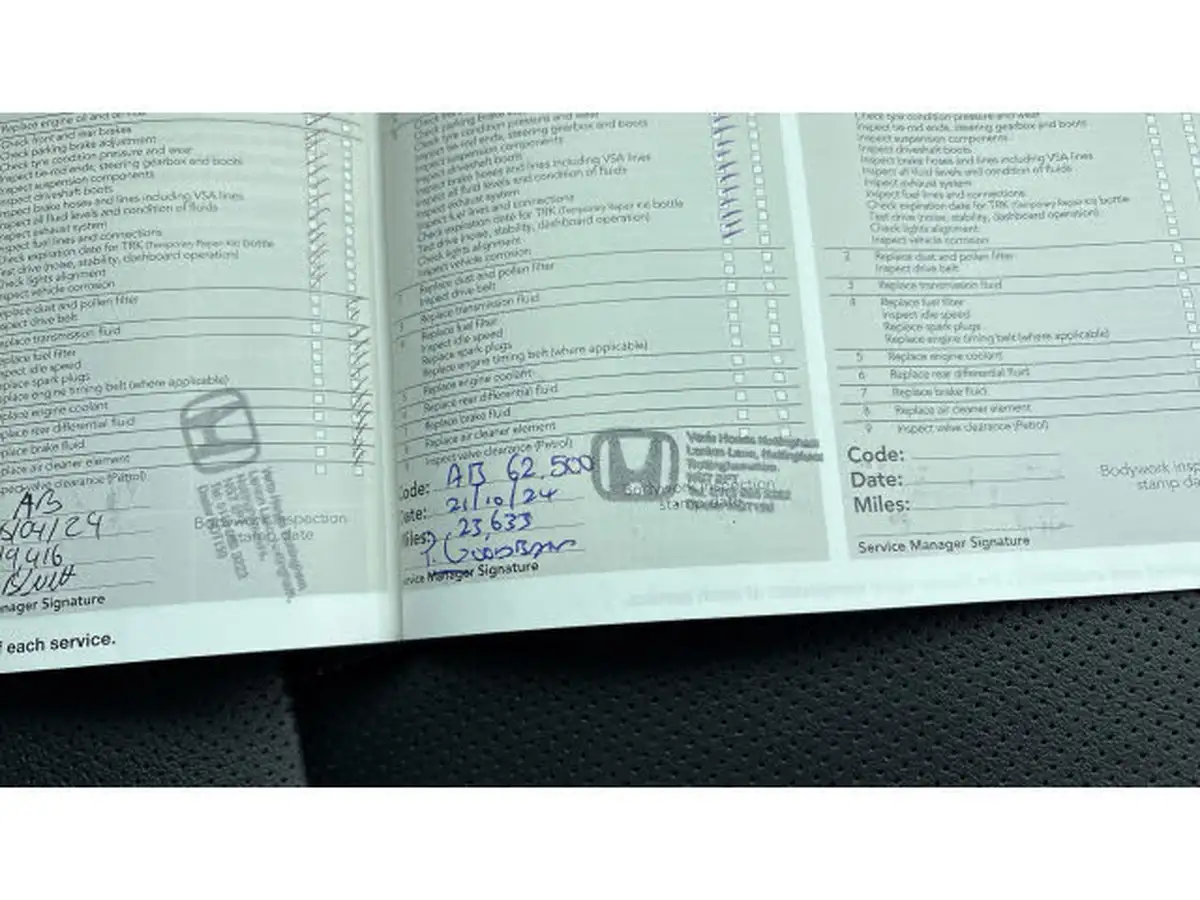 Replace engine oil and
Check front and rear brakes
Check parking brake adjustment
Check tyre condition pressure and wear
Inspect tie-rod ends, steering gearbox and boots
Inspect suspension components
Inspect driveshaft boots
Inspect brake hoses and lines including VSA lines
Inspect all fluid levels and condition of fluids
Inspect exhaust system
Inspect fuel lines and connections
Check expiration date for TRK (Temporary Repair Kit) bottle
Test drive (noise, stability, dashboard operation)
Check lights alignment
Inspect vehicle corrosion
Replace dust and pollen filter
Inspect drive belt
Replace transmission fluid
Replace fuel filter
Inspect idle speed
Replace spark plugs
Replace engine timing belt (where applicable)
Replace engine coolant
Replace rear differential fluid
Replace brake fluid
Replace air cleaner element
Inspect valve clearance (Petrol)
A/B
/04/24
19,416
Bodywork Inspection
stamp date
Manager Signature
f each service.
Check parking brake adjustment
Check tyre condition pressure and wear
Inspect tie-rod ends, steering gearbox and boots
Inspect suspension components
Inspect driveshaft boots
Inspect brake hoses and lines including VSA lines
Inspect all fluid levels and condition of fluids
Inspect exhaust system
Inspect fuel lines and connections
Check expiration date for TRK (Temporary Repair Kit) bottle
Test drive (noise, stability, dashboard operation)
Check lights alignment
Inspect vehicle corrosion
Replace dust and pollen filter
Inspect drive belt
Replace transmission fluid
Replace fuel filter
Inspect idle speed
Replace spark plugs
Replace engine timing belt (where applicable)
Replace engine coolant
Replace rear differential fluid
Replace brake fluid
Replace air cleaner element
Inspect valve clearance (Petrol)
Code: AB 62,500
Date: 21/10/24
Miles: 23,633
Service Manager Signature
Vertu Honda Nottingham
Lenton Lane, Nottingham
Nottinghamshire
Bodywork Inspection
stamp date
Check tyre condition pressure and wear
Inspect tie-rod ends, steering gearbox and boots
Inspect suspension components
Inspect driveshaft boots
Inspect brake hoses and lines including VSA lines
Inspect all fluid levels and condition of fluids
Inspect exhaust system
Inspect fuel lines and connections
Check expiration date for TRK (Temporary Repair Kit) bottle
Test drive (noise, stability, dashboard operation)
Check lights alignment
Inspect vehicle corrosion
2 Replace dust and pollen filter
Inspect drive belt
3 Replace transmission fluid
4 Replace fuel filter
Inspect idle speed
Replace spark plugs
Replace engine timing belt (where applicable)
5 Replace engine coolant
6 Replace rear differential fluid
7 Replace brake fluid
8 Replace air cleaner element
9 Inspect valve clearance (Petrol)
Code:
Date:
Miles:
Bodywork insp
stamp da
Service Manager Signature